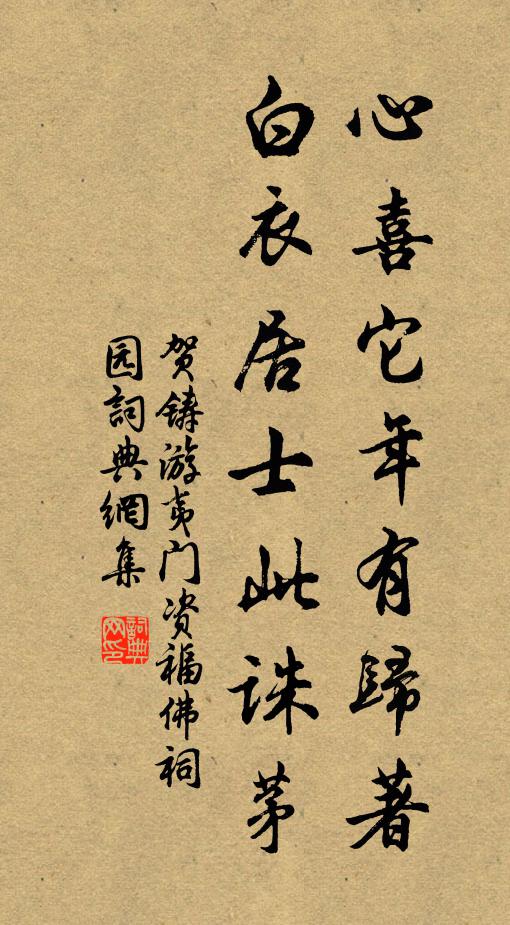 心喜它年有歸著
白衣居士此誅茅
贺鑄游夷门资福佛祠
园詞典網集
詞典网印